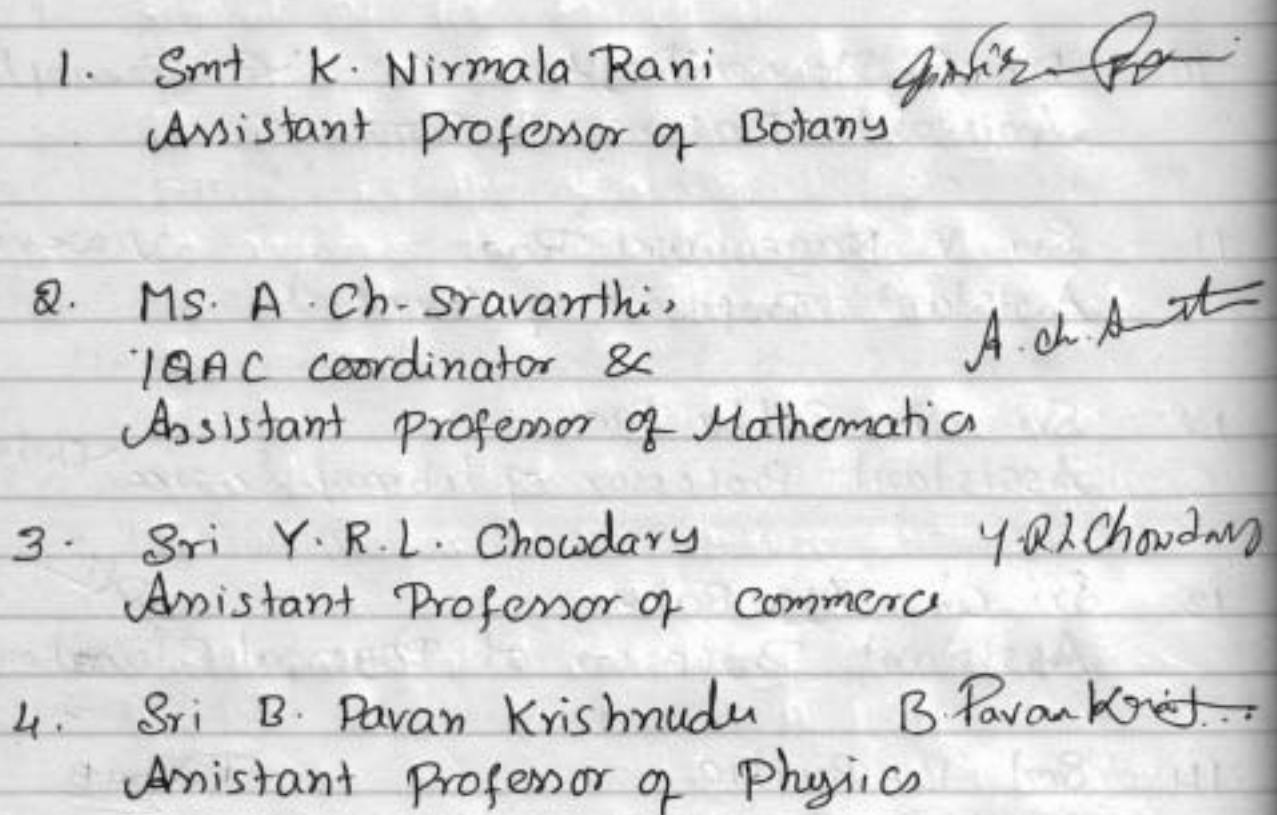 1. Smt K. Nirmala Rani
Assistant Professor of Botany
2. Ms. A. Ch. Sravanthi,
IQAC coordinator &
Assistant professor of Mathematics
3. Sri Y. R. L. Chowdary Y.R.L Chowdary
Assistant Professor of commerce
4. Sri B. Pavan Krishnudu B. Pavan
Assistant Professor of Physics